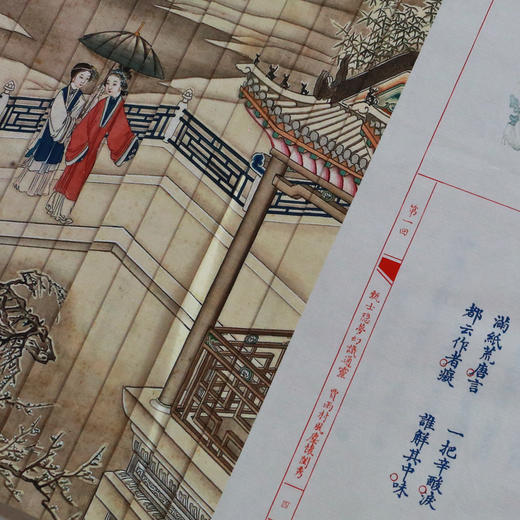 滿紙荒唐言　一把辛酸淚
都云作者癡　誰解其中味
第一回
甄士隱夢幻識通靈　賈雨村風塵懷閨秀
四